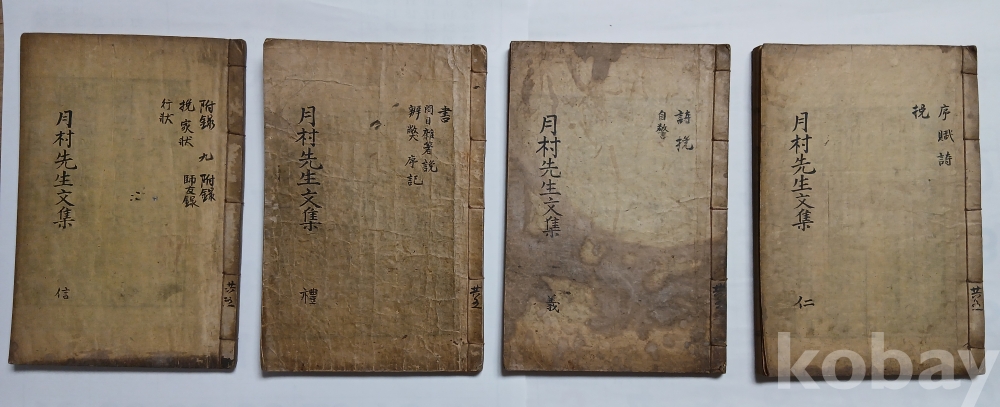 附錄 九 附錄
挽 家狀 師友錄
行狀
月村先生文集
信
書
問目雜著說
辨 序記
月村先生文集
禮
詩 挽
自警
月村先生文集
義
序 賦 詩
挽
月村先生文集
仁
kobay